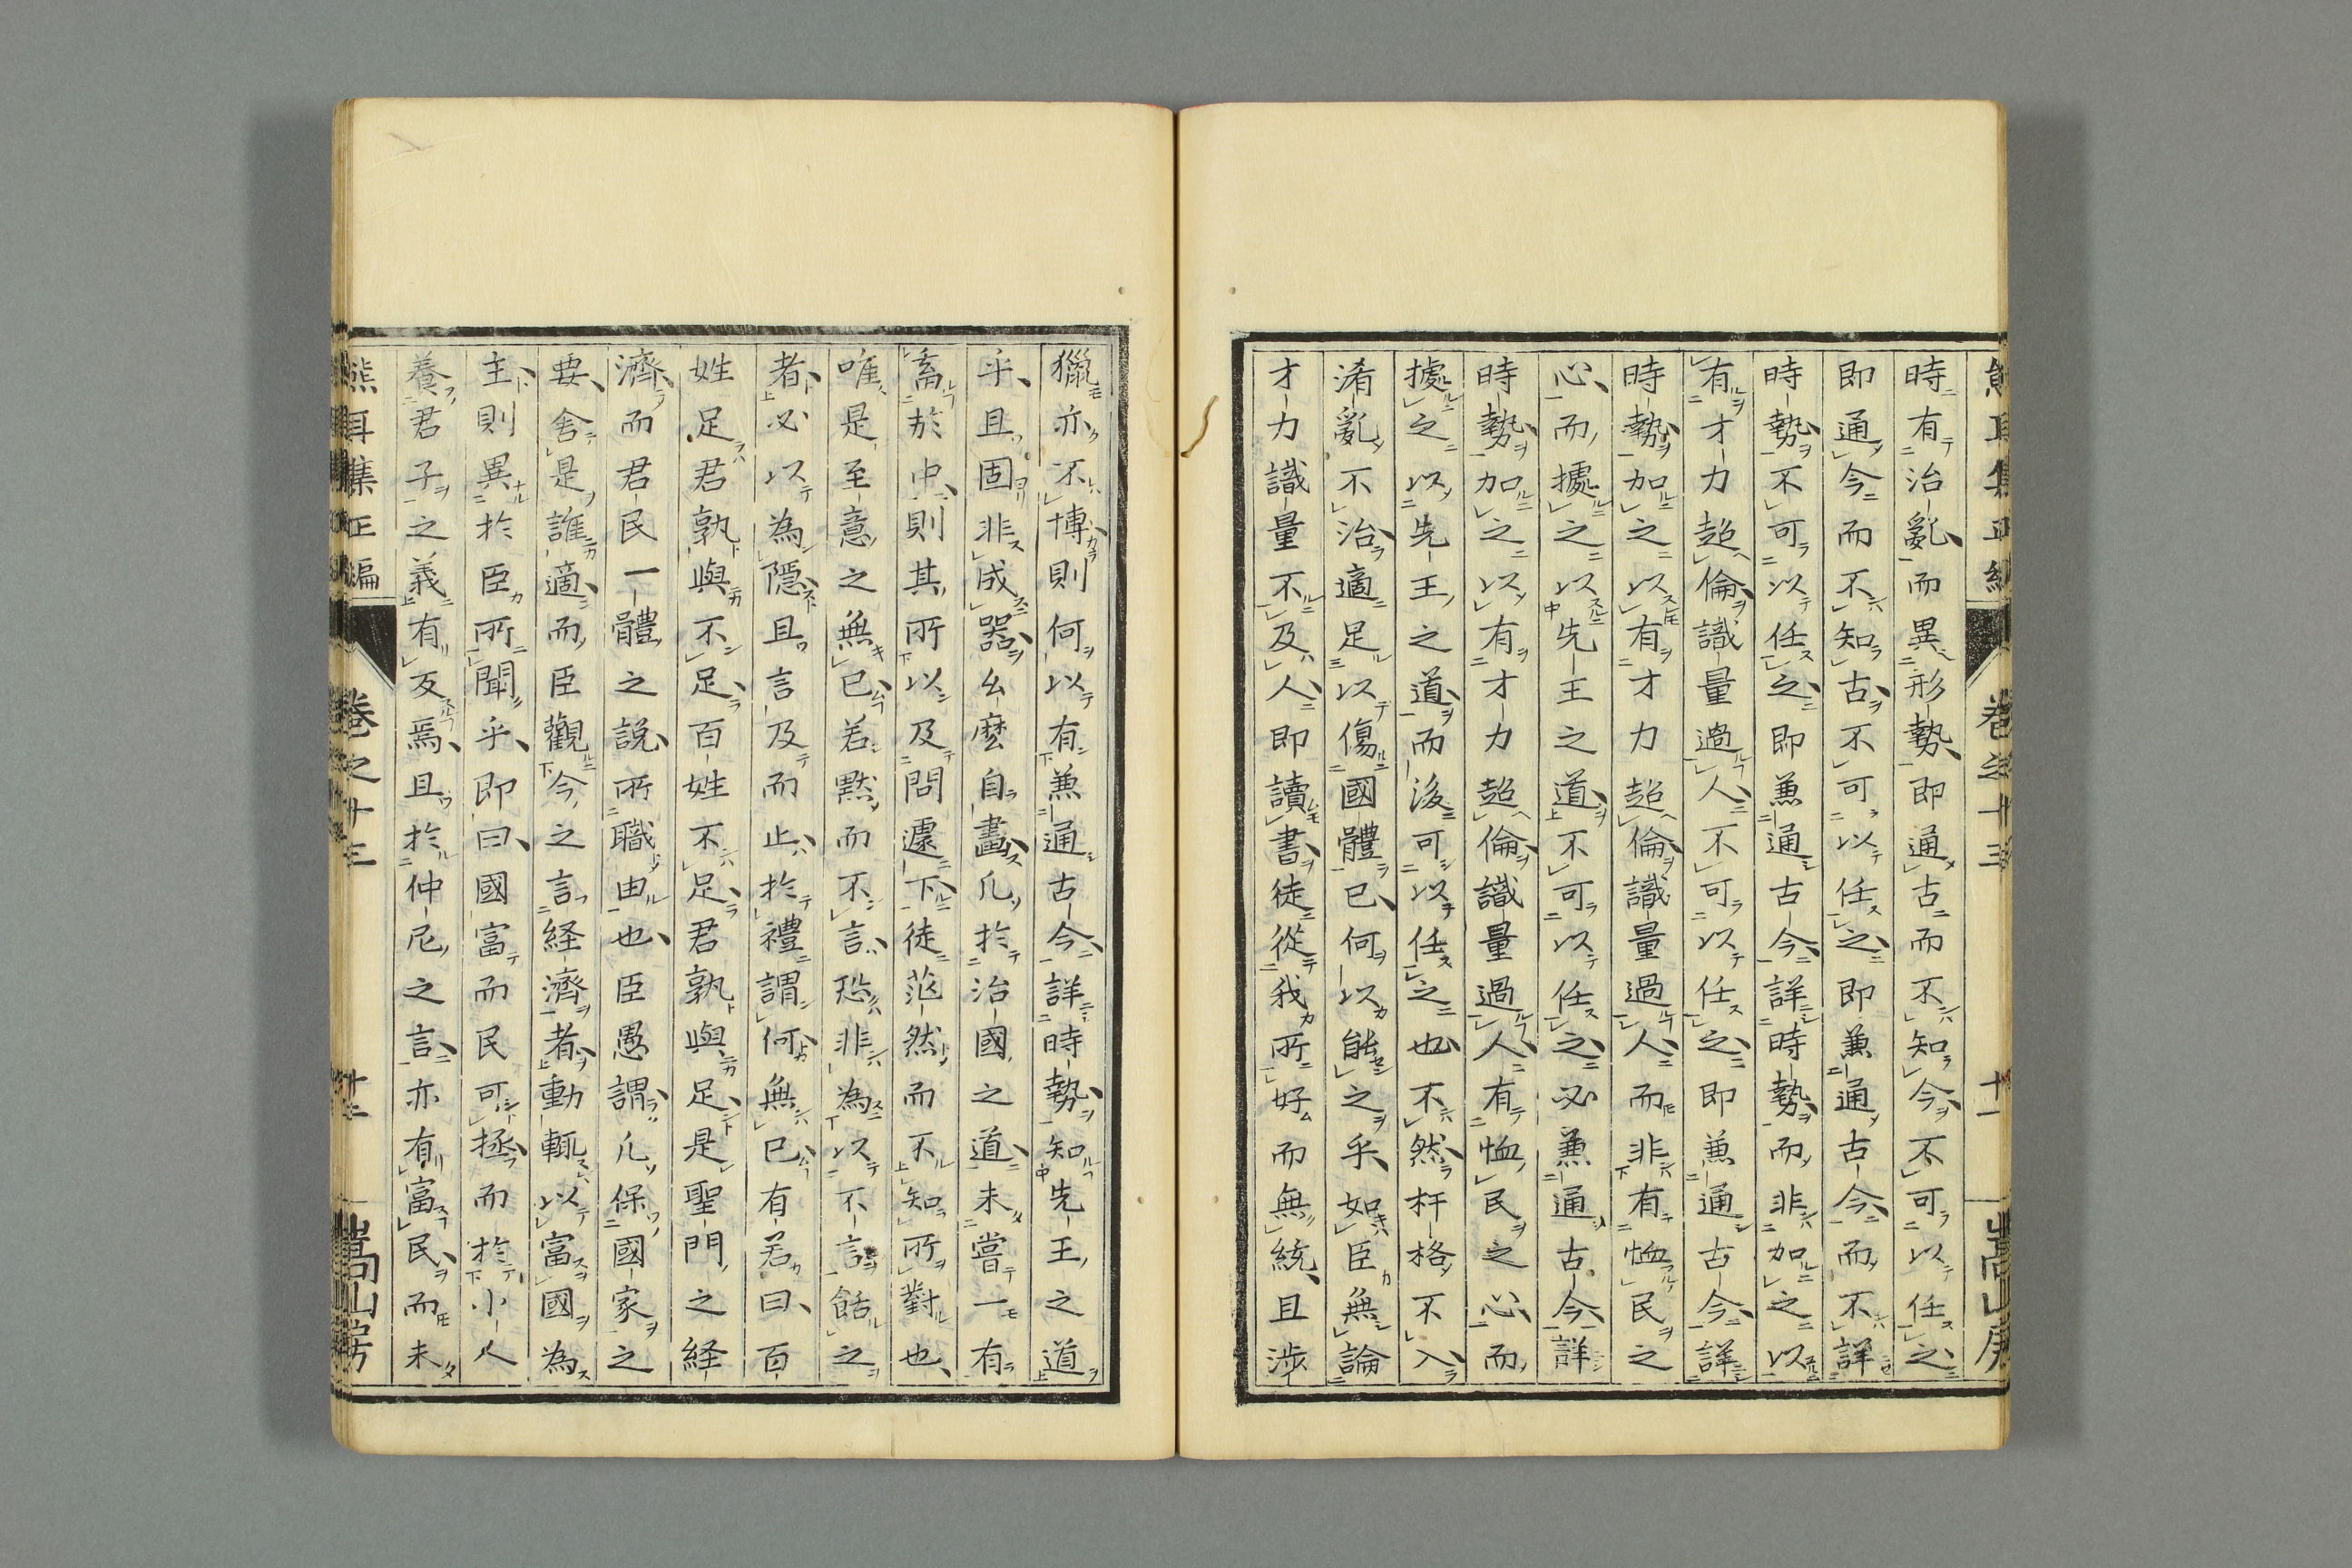 熊耳集正編　卷之十三　十一　嵩山房
時有治亂而異形勢即通古而不知今不可以任之
即通今而不知古不可以任之即兼通古今而不詳
時勢不可以任之即兼通古今詳時勢而非加之以
有才力超倫識量過人不可以任之即兼通古今詳
時勢加之以有才力超倫識量過人而非有恤民之
心而據之以先王之道不可以任之必兼通古今詳
時勢加之以有才力超倫識量過人有恤民之心而
據之以先王之道而後可以任之也不然杆格不入
淆亂不治適足以傷國體已何以能之乎如臣無論
才力識量不及人即讀書徒從我所好而無統且涉
獵亦不博則何以有兼通古今詳時勢知先王之道
乎且固非成器么麼自畫凡於治國之道未嘗一有
畜於中則其所以及問遽下徒茫然而不知所對也
唯是至意之無已若默而不言恐非為以不言餂之
者必以為隱且言及而止於禮謂何無已有若曰百
姓足君孰與不足百姓不足君孰與足是聖門之経
濟而君民一體之說所職由也臣愚謂凡保國家之
要舍是誰適而臣觀今之言経濟者動輒以富國為
主則異於臣所聞乎即曰國富而民可拯而於小人
養君子之義有反焉且於仲尼之言亦有富民而未
熊耳集正編　卷之十三　十二　嵩山房